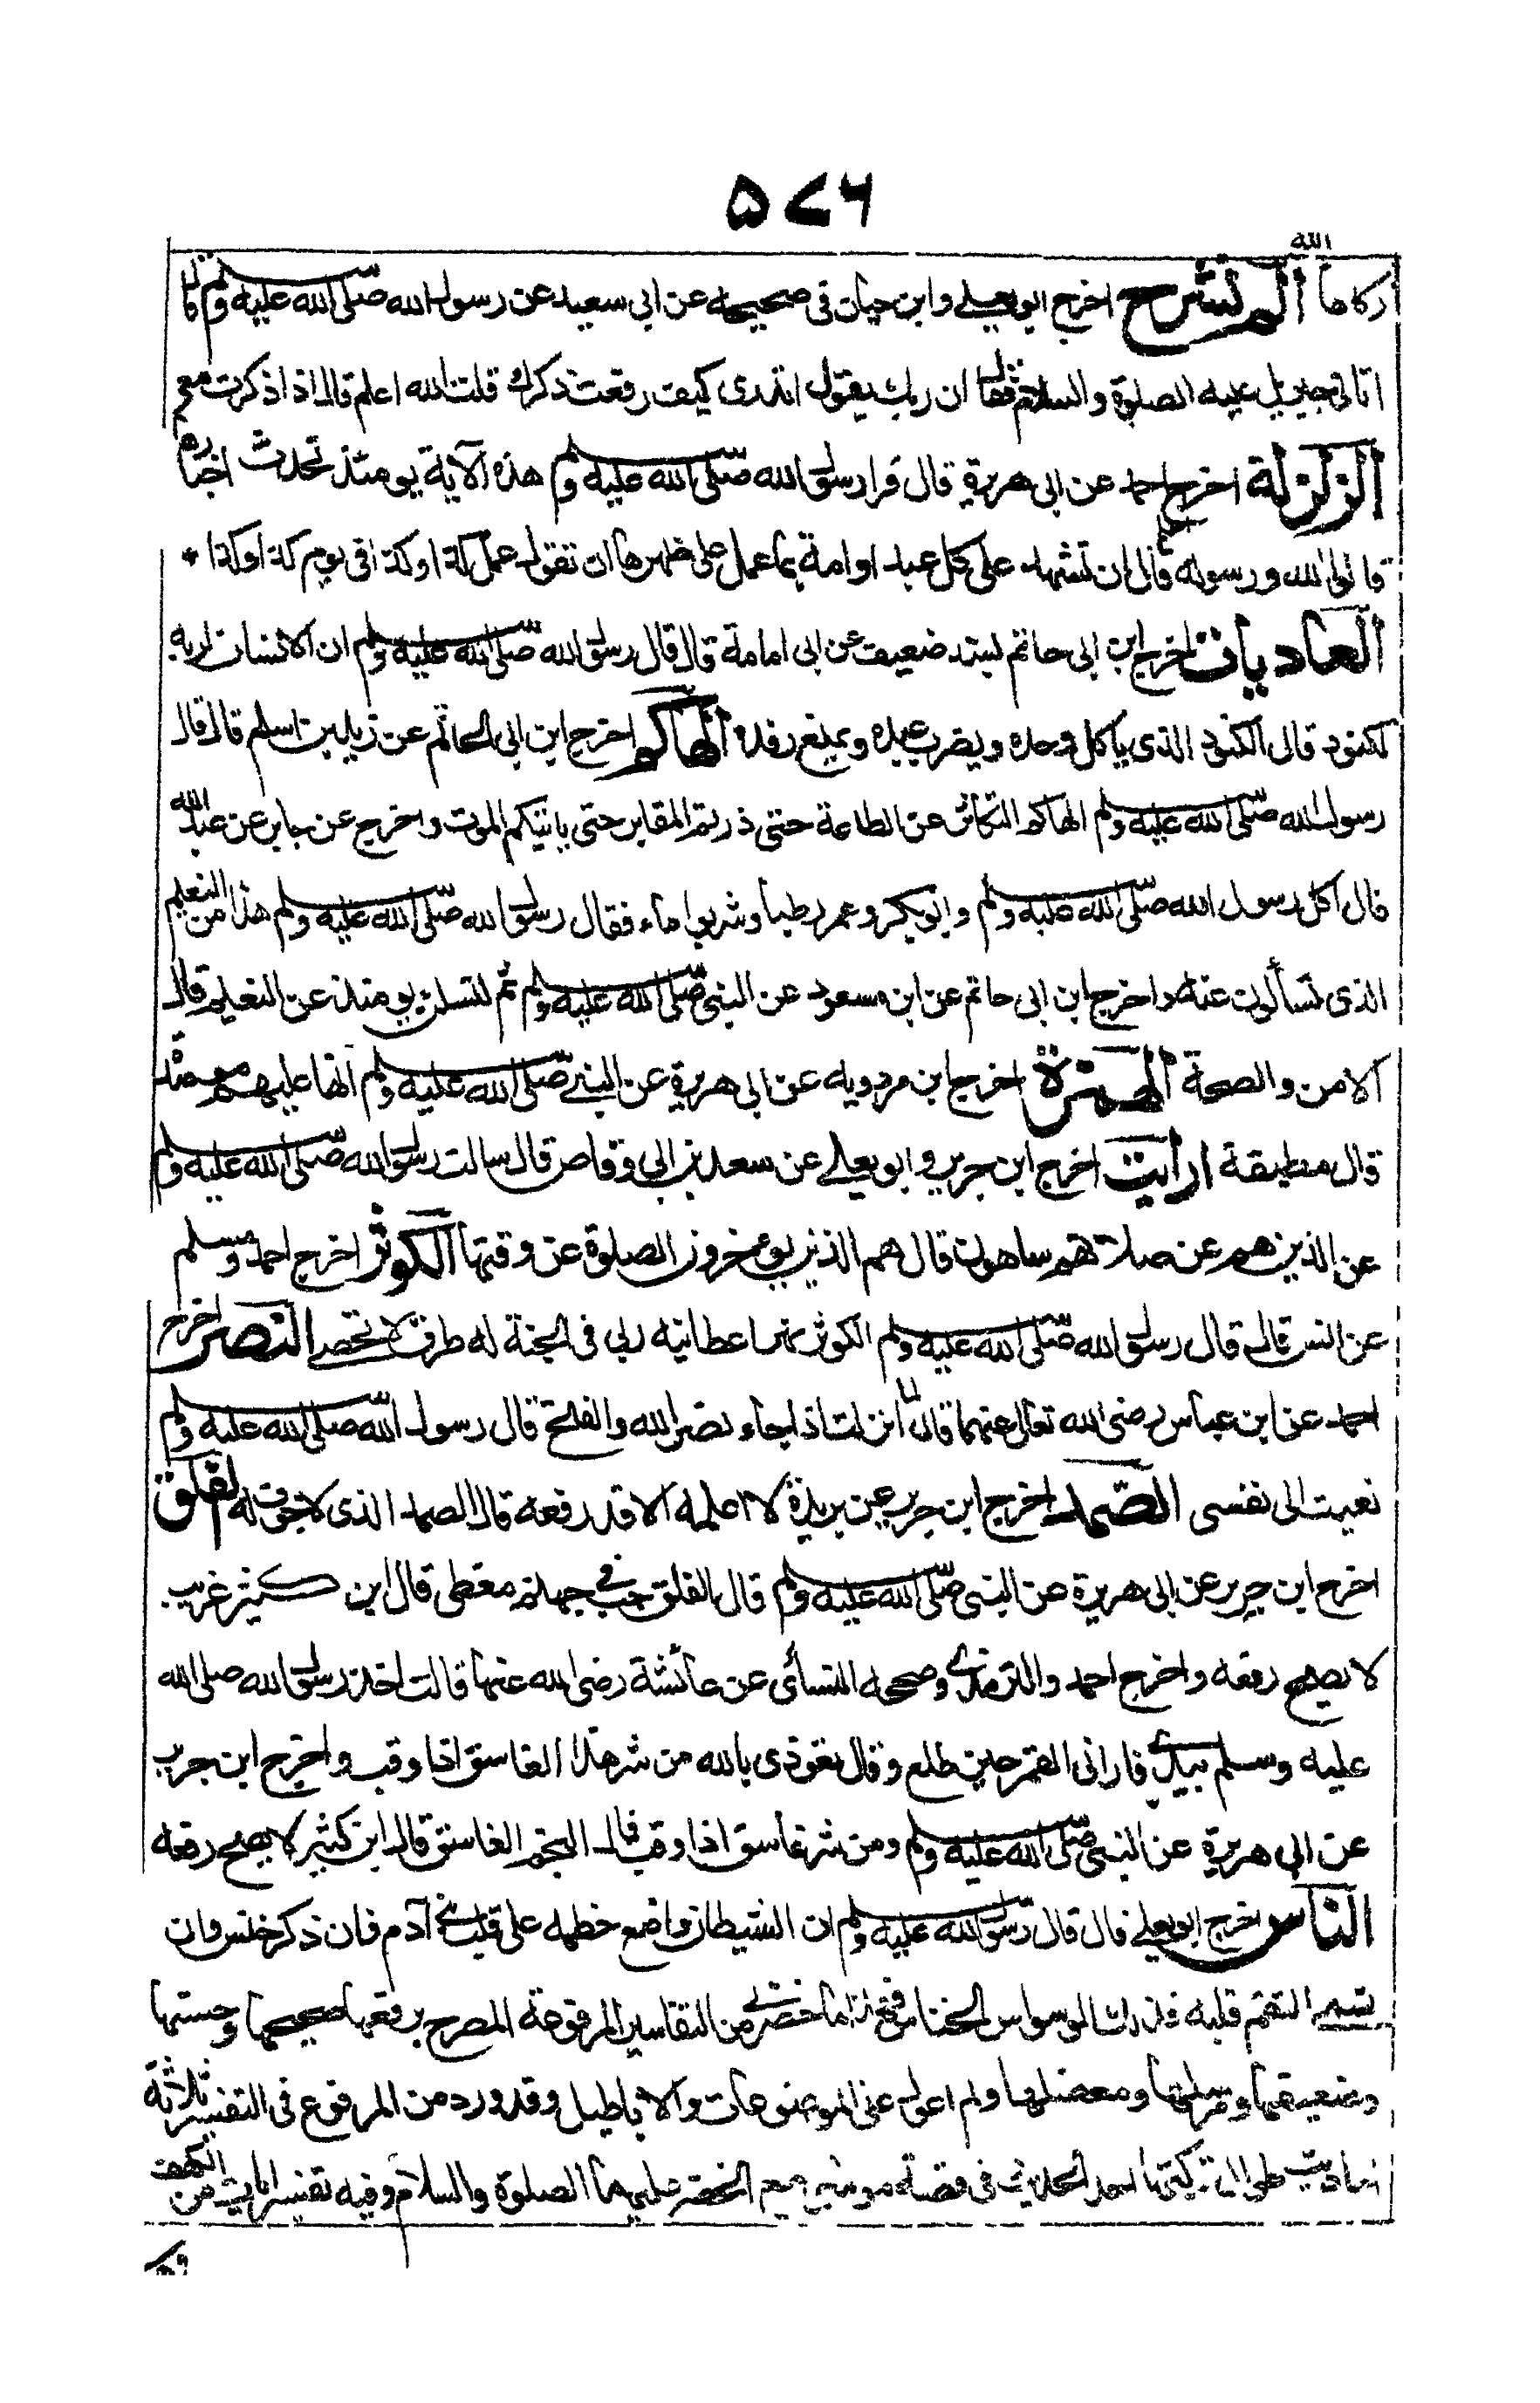 ٥٧٦
الله
زكاها الم نشرح اخرج ابو يعلى وابن حبان فى صحيحه عن ابى سعيد عن رسول الله صلى الله عليه ولم قال
اتانى جبريل عليه الصلوة والسلام فقال ان ربك يقول اتدرى كيف رفعت ذكرك قلت الله اعلم قال اذا ذكرت ذكرت معى
الزلزلة اخرج احمد عن ابى هريرة قال قرا رسول الله صلى الله عليه ولم هذه الآية يومئذ تحدث اخبارها
قالوا الله ورسوله اعلم قال ان تشهد على كل عبد او امة بما عمل على ظهرها ان تقول عمل كذا وكذا فى يوم كذا وكذا *
العاديات اخرج ابن ابى حاتم بسند ضعيف عن ابى امامة قال قال رسول الله صلى الله عليه ولم ان الانسان لربه
لكنود قال الكنود الذى ياكل وحده ويضرب عبده ويمنع رفده الهاكم اخرج ابن ابى الحاتم عن زيد بن اسلم قال قال
رسول الله صلى الله عليه ولم الهاكم التكاثر عن الطاعة حتى زرتم المقابر حتى ياتيكم الموت واخرج عن جابر عن عبد الله
قال اكل رسول الله صلى الله عليه ولم وابو بكر وعمر رطبا وشربوا ماء فقال رسول الله صلى الله عليه ولم هذا من النعيم
الذى تسألون عنه واخرج ابن ابى حاتم عن ابن مسعود عن النبى صلى الله عليه ولم ثم لتسئلن يومئذ عن النعيم قال
الامن والصحة الهمزة اخرج ابن مردويه عن ابى هريرة عن النبى صلى الله عليه ولم انها عليهم موصدة
قال مطبقة ارايت اخرج ابن جرير وابو يعلى عن سعد بن ابى وقاص قال سالت رسول الله صلى الله عليه ولم
عن الذين هم عن صلاتهم ساهون قال هم الذين يوخرون الصلوة عن وقتها الكوثر اخرج احمد ومسلم
عن انس قال قال رسول الله صلى الله عليه ولم الكوثر نهر اعطانيه ربى فى الجنة له طرق لا تحصى النصر اخرج
احمد عن ابن عباس رضى الله تعالى عنهما قال لما انزلت اذا جاء نصر الله والفتح قال رسول الله صلى الله عليه ولم
نعيت الى نفسى الصمد اخرج ابن جرير عن بريدة لا اعلمه الا قد رفعه قال الصمد الذى لا جوف له الفلق
اخرج ابن جرير عن ابى هريرة عن النبى صلى الله عليه ولم قال الفلق جب فى جهنم مغطى قال ابن كثير غريب
لا يصح رفعه واخرج احمد والترمذى وصححه النسائى عن عائشة رضى الله عنها قالت اخذ رسول الله صلى الله
عليه وسلم بيدى فارانى القمر حين طلع وقال تعوذى بالله من شر هذا الغاسق اذا وقب واخرج ابن جرير
عن ابى هريرة عن النبى صلى الله عليه ولم ومن شر غاسق اذا وقب قال النجم الغاسق قال ابن كثير لا يصح رفعه
الناس اخرج ابو يعلى قال قال رسول الله صلى الله عليه ولم ان الشيطان واضع خطمه على قلب ابن آدم فان ذكر خنس وان
نسى التقم قلبه فذلك الوسواس الخناس فهذا ما حضرنى من التفاسير المرفوعة المصرح برفعها صحيحها وحسنها
وضعيفها ومرسلها ومعضلها ولم اعول على الموضوعات والاباطيل وقد ورد من المرفوع فى التفسير ثلاثة
احاديث طوال تركتها احد الحديث فى قصة موسى مع الخضر عليهما الصلوة والسلام وفيه تفسير ايات من الكهف